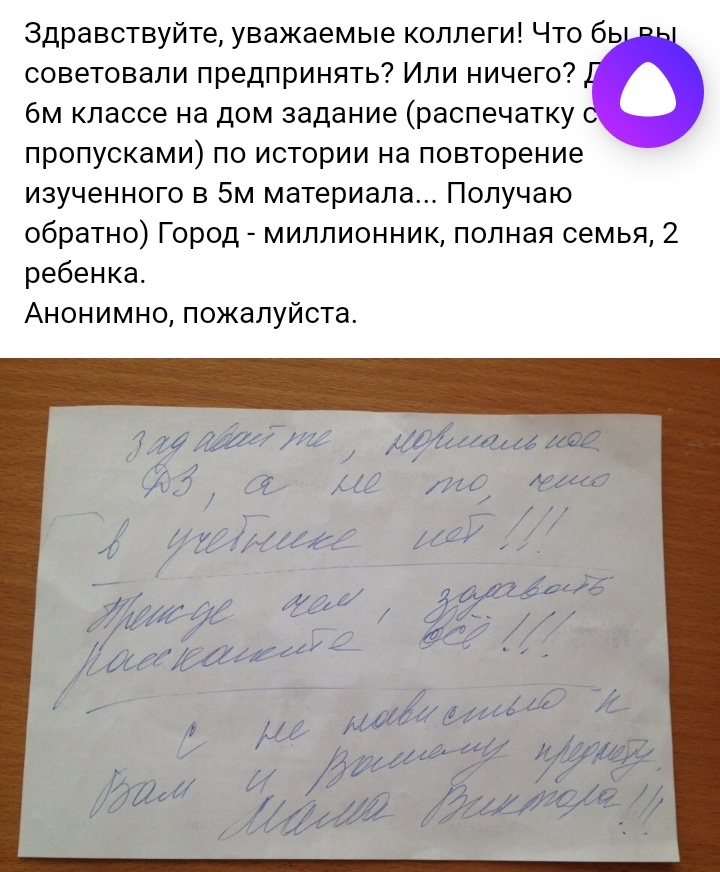 Здравствуйте, уважаемые коллеги! Что бы вы
советовали предпринять? Или ничего?
6м классе на дом задание (распечатку с
пропусками) по истории на повторение
изученного в 5м материала... Получаю
обратно) Город - миллионник, полная семья, 2
ребенка.
Анонимно, пожалуйста.
задавайте, нормальное
ДЗ, а не то, что
в учебнике нет!!!
Прежде чем, задавать
расскажите всё!!!
с не навистью к
Вам и Вашему предмету.
Мама Виктора!!!